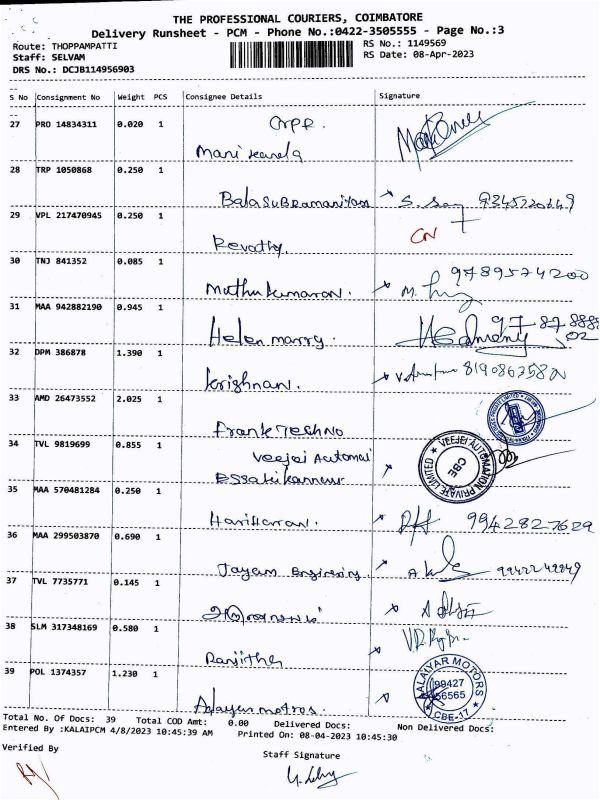 THE PROFESSIONAL COURIERS, COIMBATORE
Delivery Runsheet - PCM - Phone No.:0422-3505555 - Page No.:3
Route: THOPPAMPATTI
RS No.: 1149569
Staff: SELVAM
RS Date: 08-Apr-2023
DRS No.: DCJB114956903
S No Consignment No Weight PCS Consignee Details Signature
27 PRO 14834311 0.020 1
28 TRP 1050868 0.250 1
Balasubramaniam S.
29 VPL 217470945 0.250 1 CN
Revathy.
30 TNJ 841352 0.085 1
Muthukumaran. M. 9789574200
31 MAA 942882190 0.945 1
Helen marry.
32 DPM 386878 1.390 1
Krishnan.
33 AMD 26473552 2.025 1
Frank Teshno
34 TVL 9819699 0.855 1
Veejei Automai
VEEJEI AUTOMATION PRIVATE LIMITED CBE
35 MAA 570481284 0.250 1
Hariharran. 9942827629
36 MAA 299503870 0.690 1
Jayam Engineering.
37 TVL 7735771 0.145 1
38 SLM 317348169 0.580 1
Ranjitha
39 POL 1374357 1.230 1
MOTORS 99427 56565 CBE-17
Total No. Of Docs: 39 Total COD Amt: 0.00 Delivered Docs: Non Delivered Docs:
Entered By :KALAIPCM 4/8/2023 10:45:39 AM Printed On: 08-04-2023 10:45:30
Verified By
Staff Signature